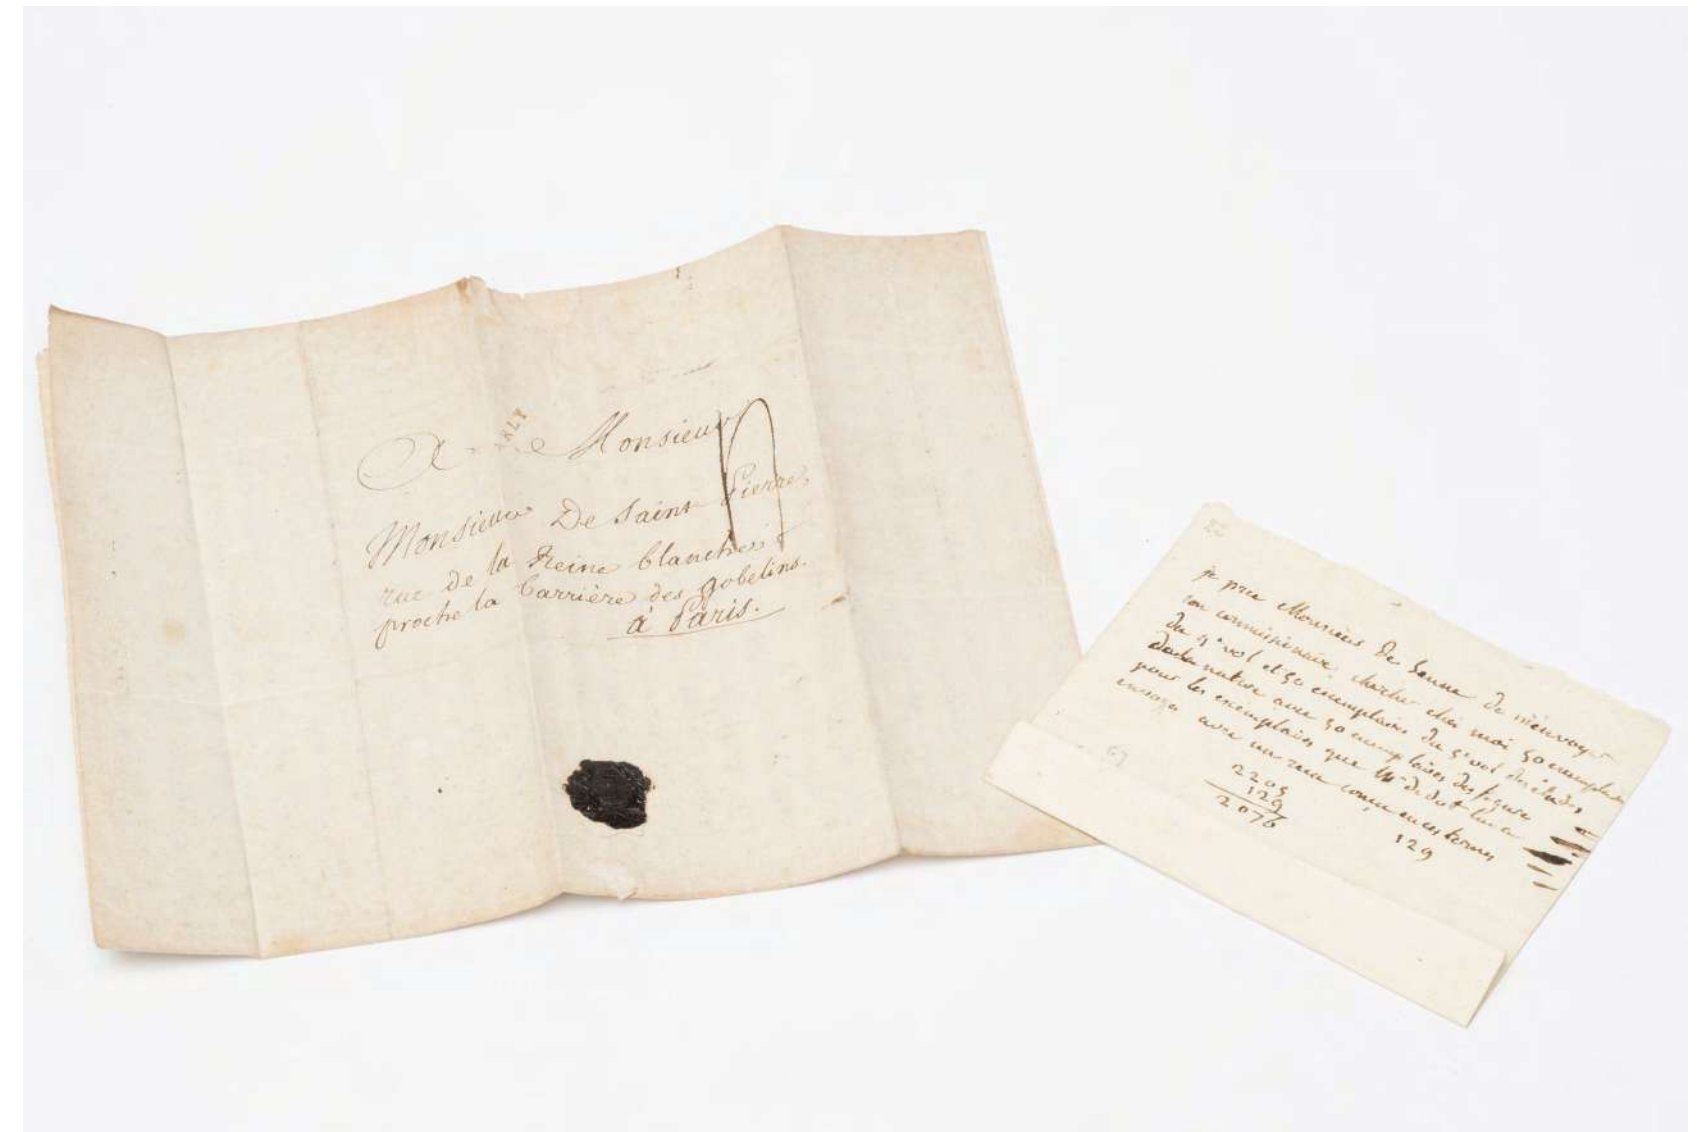 ARLY
A Monsieur
Monsieur De Saint Pierre,
rue de la Reine blanche
proche la barrière des gobelins.
à Paris.
22
je prie Monsieur De de m'envoyer
son commissionaire chercher chez moi 50 exemplaires
du 4e vol et 50 exemplaires du 5e vol des études
de la nature avec 50 exemplaires des figures
pour les exemplaires que Mr didot lui a
envoyés avec un recu concu en ces termes
2205
129
2076
129
67